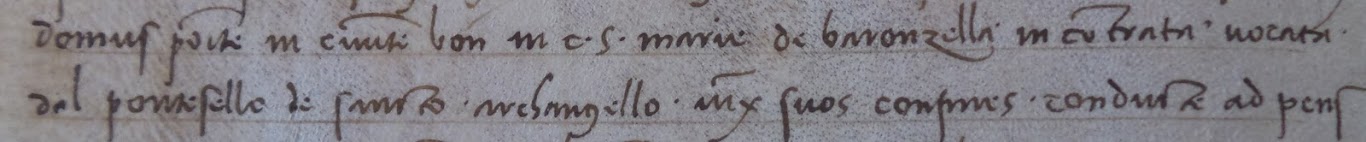 domus poite in civite bon in c. s. marie de baronzella in cotrata vocata.
del pontesello de sancto. archangello. iux suos confines. conducte ad pens